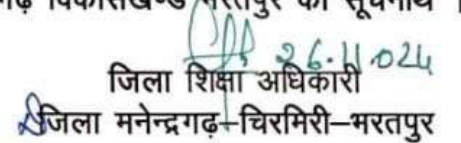 गढ़ विकासखण्ड भरतपुर की सूचनार्थ ।
26.11.024
जिला शिक्षा अधिकारी
जिला मनेन्द्रगढ़–चिरमिरी–भरतपुर